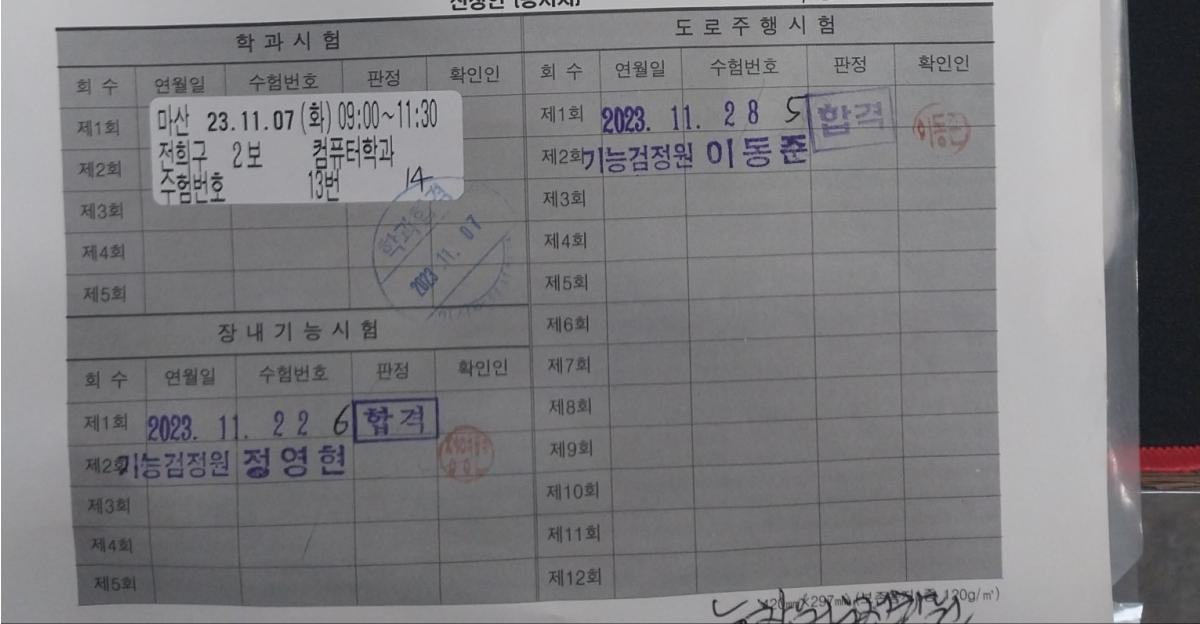 학과시험
회 수 연월일 수험번호 판정 확인인
제1회
제2회
제3회
제4회
제5회
마산 23.11.07 (화) 09:00~11:30
전희구 2보 컴퓨터학과
수험번호 13번 14
학과합격
2023. 11. 07
장내기능시험
회 수 연월일 수험번호 판정 확인인
제1회 2023. 11. 22 6 합격
제2회 기능검정원 정영현
제3회
제4회
제5회
도로주행시험
회 수 연월일 수험번호 판정 확인인
제1회 2023. 11. 28 5 합격 이동준
제2회 기능검정원 이동준
제3회
제4회
제5회
제6회
제7회
제8회
제9회
제10회
제11회
제12회
120g/㎡)